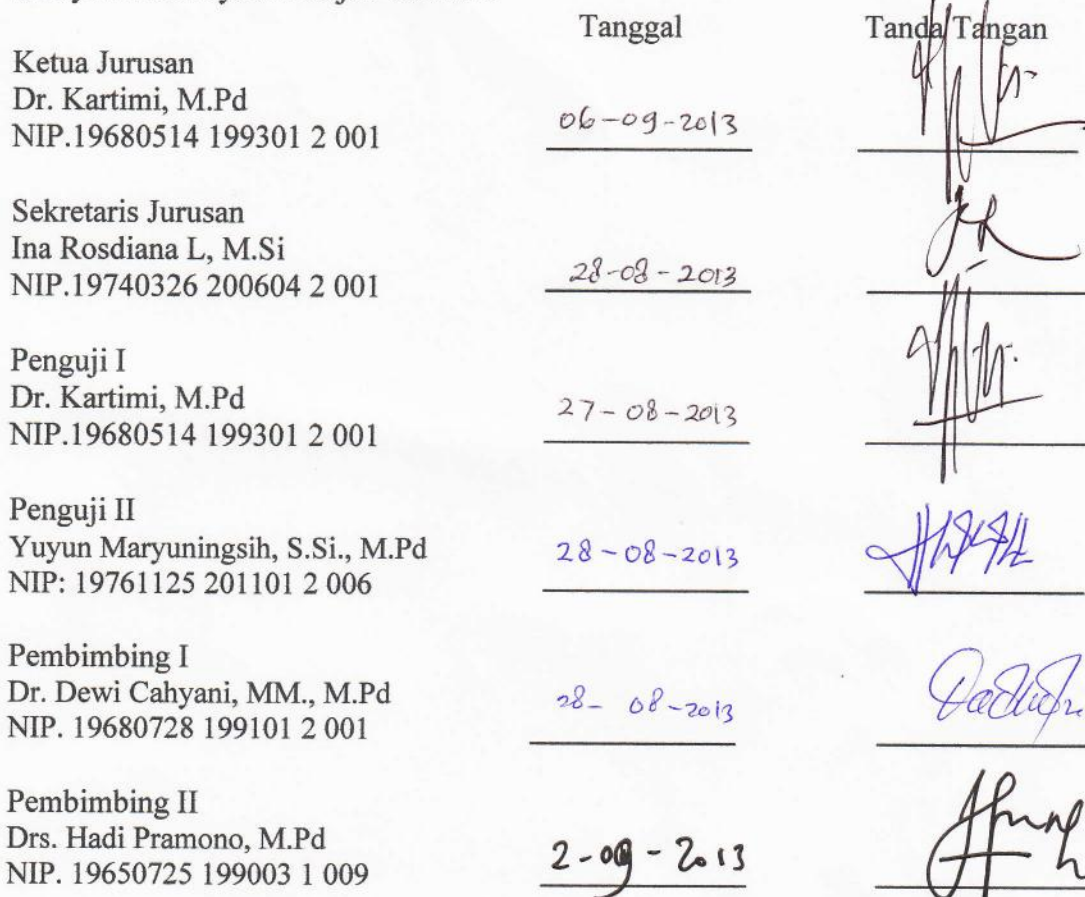 Tanggal Tanda Tangan
Ketua Jurusan
Dr. Kartimi, M.Pd
NIP.19680514 199301 2 001 06-09-2013
Sekretaris Jurusan
Ina Rosdiana L, M.Si
NIP.19740326 200604 2 001 28-08-2013
Penguji I
Dr. Kartimi, M.Pd
NIP.19680514 199301 2 001 27-08-2013
Penguji II
Yuyun Maryuningsih, S.Si., M.Pd
NIP: 19761125 201101 2 006 28-08-2013
Pembimbing I
Dr. Dewi Cahyani, MM., M.Pd
NIP. 19680728 199101 2 001 28-08-2013
Pembimbing II
Drs. Hadi Pramono, M.Pd
NIP. 19650725 199003 1 009 2-09-2013